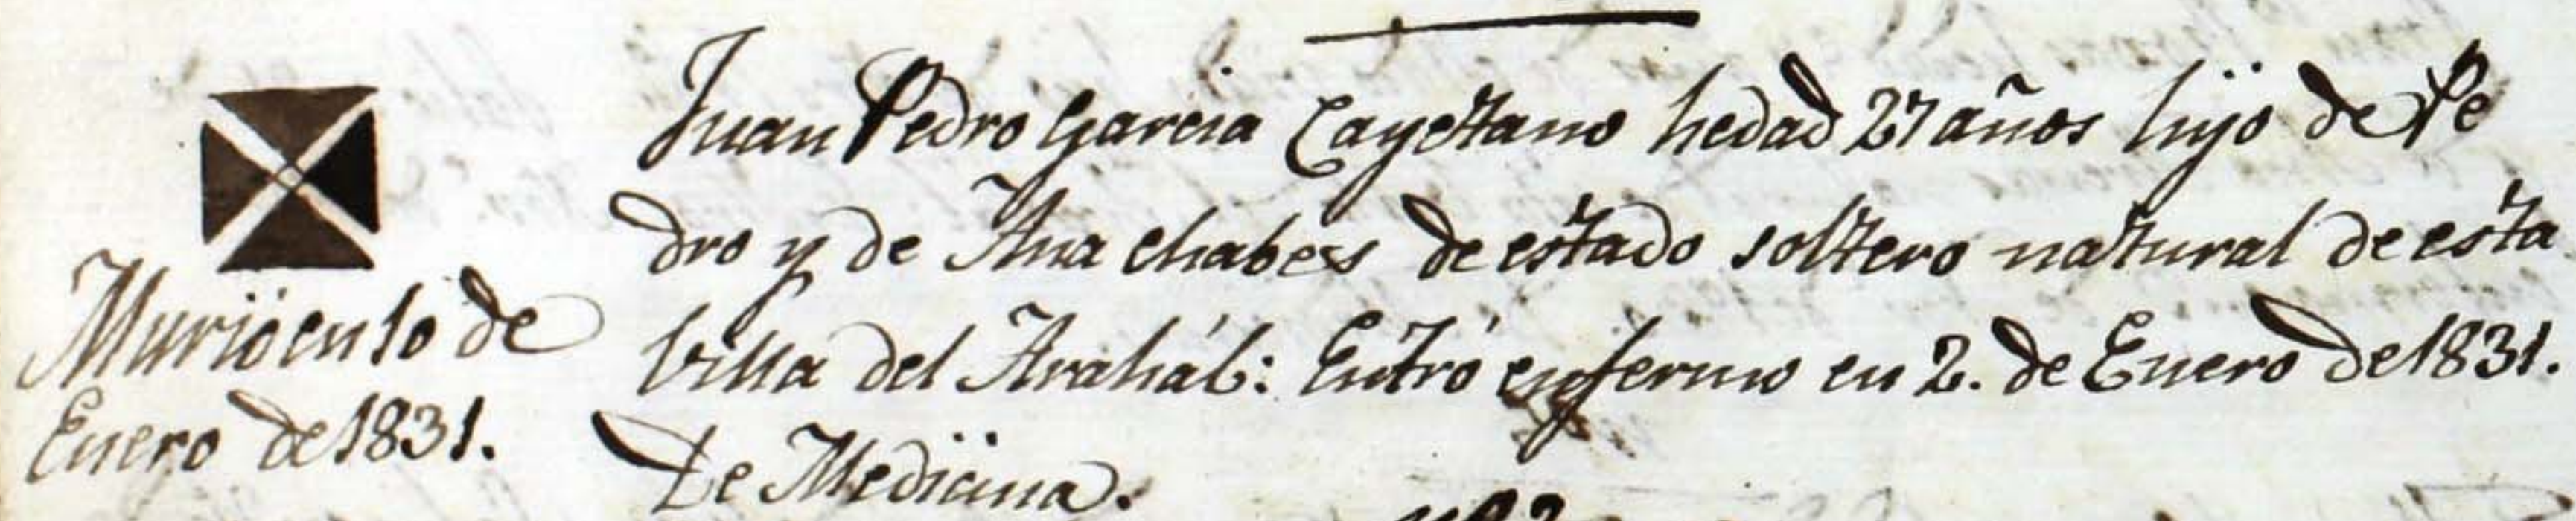 Murió en 10 de
Enero de 1831.
Juan Pedro Garcia Cayetano hedad 27 años hijo de Pe
dro y de Ana chabes de estado soltero natural de esta
Villa del Arahál: Entró enfermo en 2. de Enero de 1831.
De Medicina.